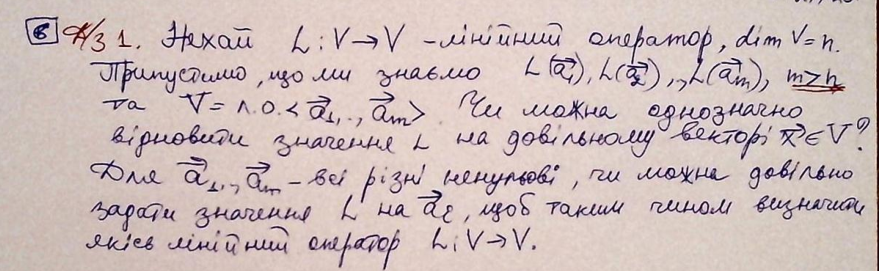 6 Д/з 1. Нехай L:V→V – лінійний оператор, dim V=n.
Припустимо, що ми знаємо L(a⃗₁), L(a⃗₂),.., L(a⃗ₘ), m>n
та V = л.о.<a⃗₁,.., a⃗ₘ>. Чи можна однозначно
відновити значення L на довільному векторі x⃗∈V?
Для a⃗₁,.., a⃗ₘ – всі різні ненульові, чи можна довільно
задати значення L на a⃗ᵢ, щоб таким чином визначити
якісь лінійний оператор L:V→V.